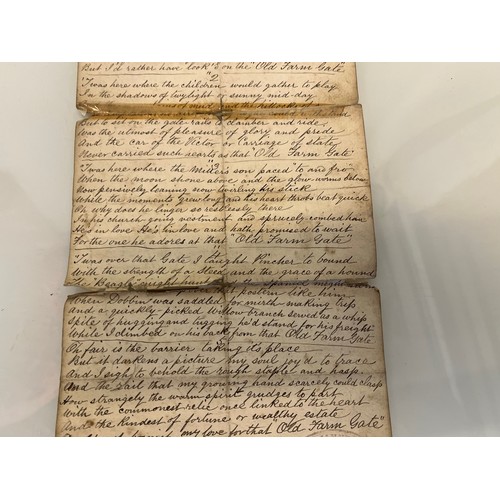 But I'd rather have "look'd on the "Old Farm Gate"
"2
'Twas here where the children would gather to play
In the shadows of twylight or sunny mid-day
But to sit on the gate rails to clamber and ride
Was the utmost of pleasure of glory and pride
And the car of the Victor or Carriage of state
Never carried such hearts as that "Old Farm Gate"
"3
'Twas here where the Miller's son paced to and fro
When the moon shone above and the glow-worms below
Now pensively leaning now twirling his stick
While the moments grew long and his heart throbs beat quick
Oh why does he linger so restlessly there
In his church-going vestment and sprucely-combed hair
He's in love He's in love and hath promised to wait
For the one he adores at that "Old Farm Gate"
'Twas over that Gate I taught Pincher to bound
With the strength of a Steed and the grace of a hound
The Beagle might hunt and the Spaniel might swim
postern like him
When Dobbin was saddled for mirth-making trip
And a quickly-picked Willow-branch served as a whip
Spite of hugging and lugging he'd stand for his freight
While I climbed on his back from that "Old Farm Gate
Oh fair is the barrier taking its place
But it darkens a picture my soul joy'd to trace
And I sigh to behold the rough staple and hasp
And the rail that my growing hand scarcely could clasp
How strangely the warm spirit grudges to part
With the commonest relic once linked to the heart
And the kindest of fortune or wealthy estate
my love for that "Old Farm Gate"